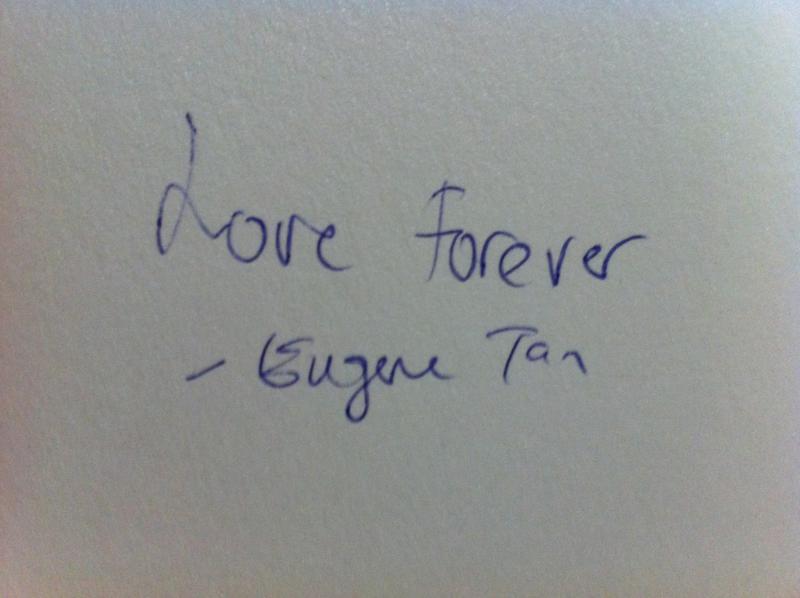 Love Forever
- Eugene Tan